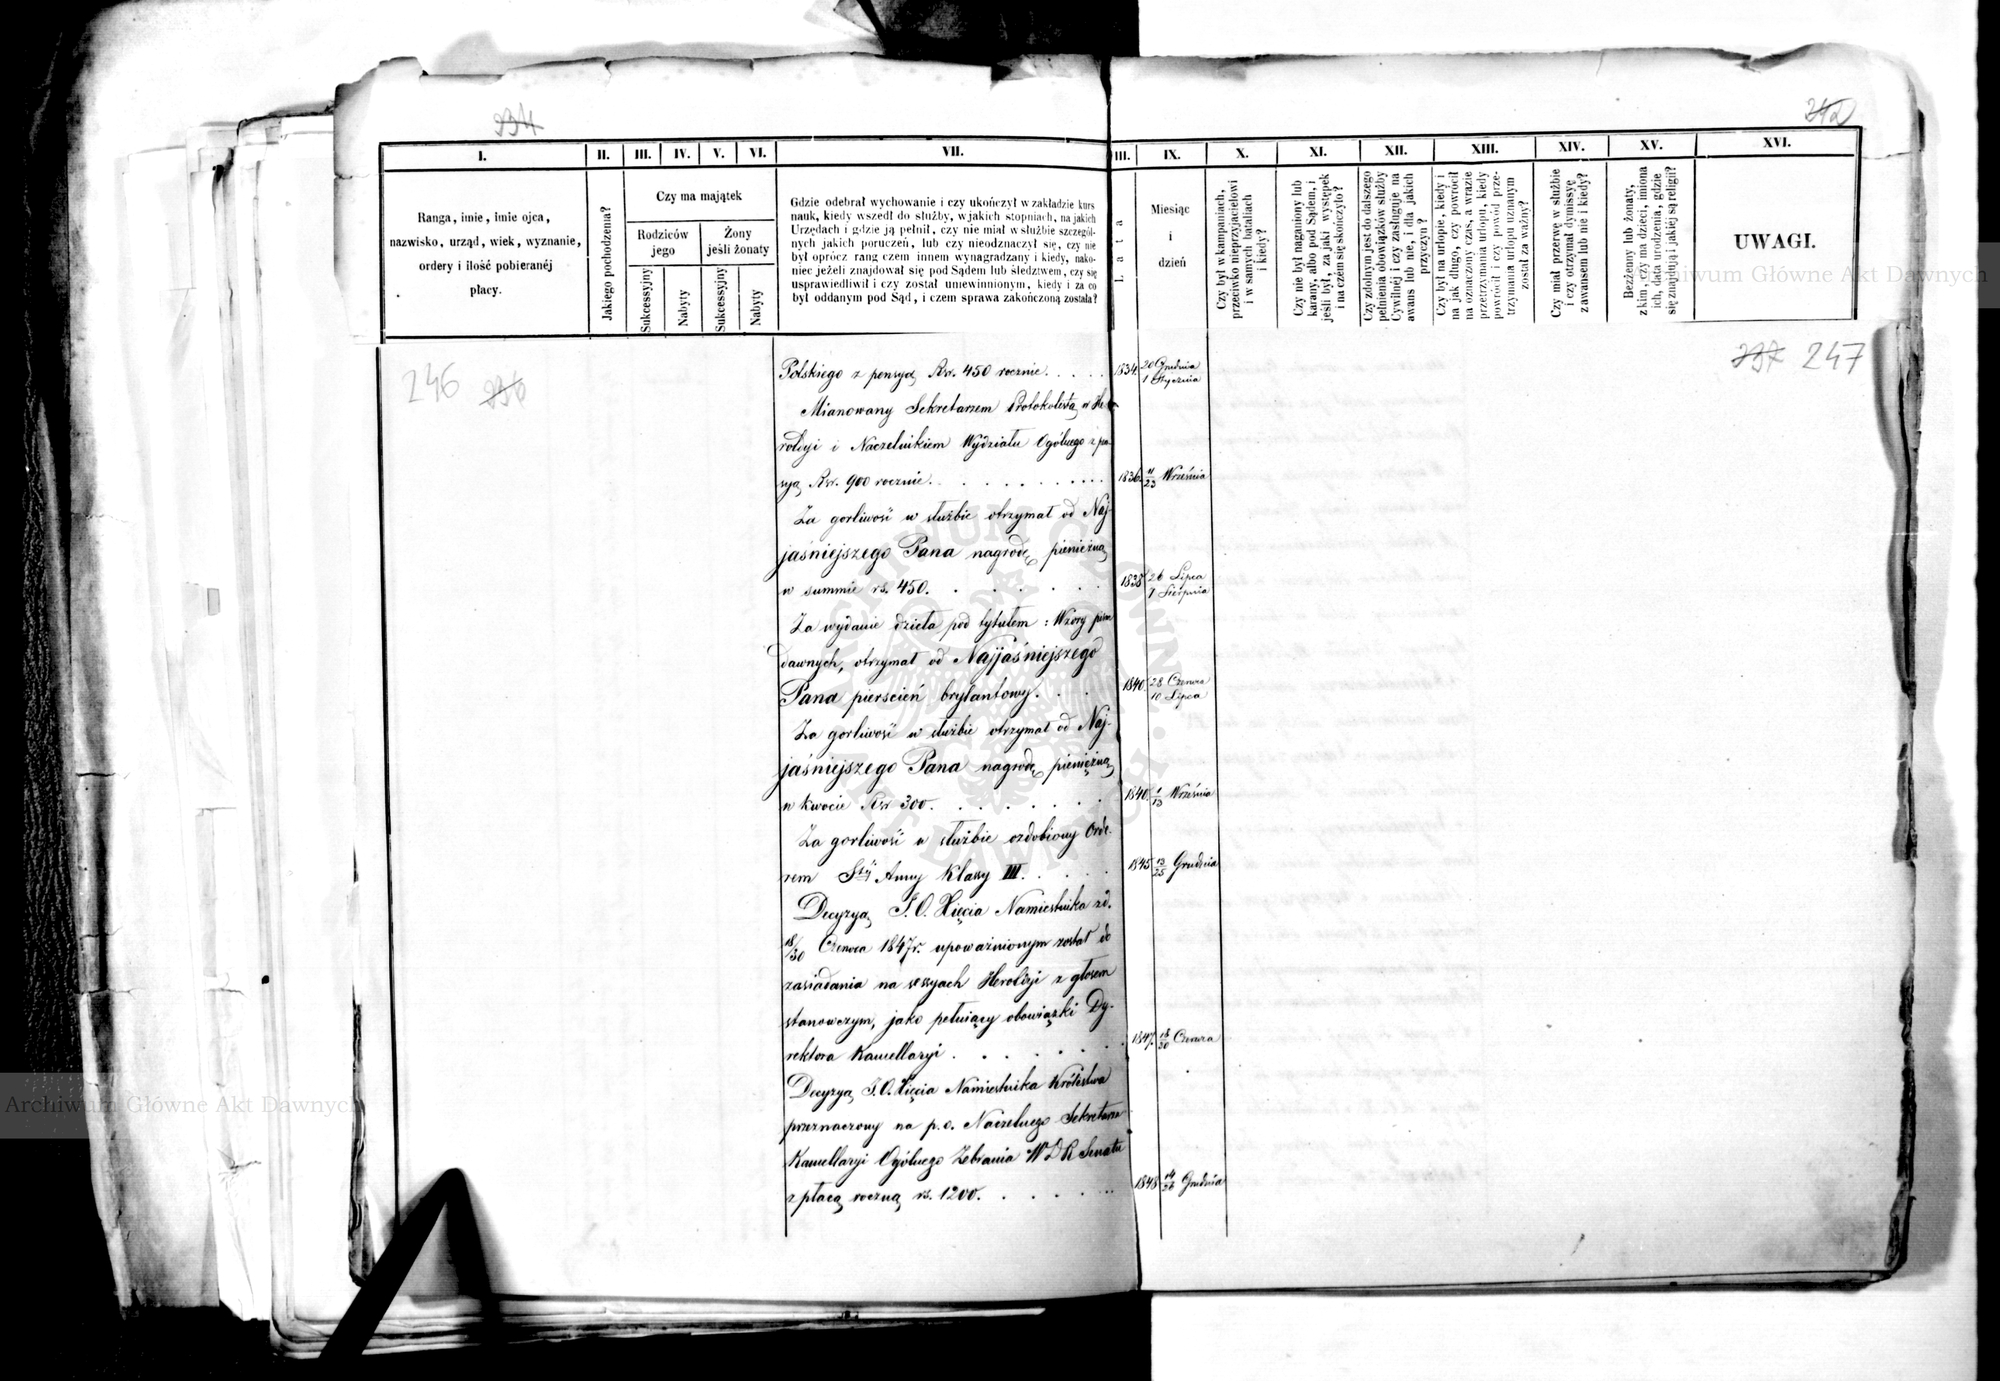 234
242
I.
II.
III.
IV.
V.
VI.
VII.
III.
IX.
X.
XI.
XII.
XIII.
XIV.
XV.
XVI.
Ranga, imie, imie ojca,
nazwisko, urząd, wiek, wyznanie,
ordery i ilość pobieranéj
płacy.
Jakiego pochodzenia?
Czy ma majątek
Rodziców
jego
Żony
jeśli żonaty
Sukcessyjny
Nabyty
Sukcessyjny
Nabyty
Gdzie odebrał wychowanie i czy ukończył w zakładzie kurs
nauk, kiedy wszedł do służby, w jakich stopniach, na jakich
Urzędach i gdzie ją pełnił, czy nie miał w służbie szczegól-
nych jakich poruczeń, lub czy nieodznaczył się, czy nie
był oprócz rang czem innem wynagradzany i kiedy, nako-
niec jeżeli znajdował się pod Sądem lub śledztwem, czy się
usprawiedliwił i czy został uniewinnionym, kiedy i za co
był oddanym pod Sąd, i czem sprawa zakończoną została?
Lata
Miesiąc
i
dzień
Czy był w kampaniach,
przeciwko nieprzyjacielowi
i w samych bataliach
i kiedy?
Czy nie był naganiony lub
karany, albo pod Sądem, i
jeśli był, za jaki występek
i na czém się skończyło?
Czy zdolnym jest do dalszego
pełnienia obowiązków służby
Cywilnéj i czy zasługuje na
awans lub nie, i dla jakich
przyczyn?
Czy był na urlopie, kiedy i
na jak długo, czy powrócił
na oznaczony czas, a w razie
przetrzymania urlopu, kiedy
powrócił i czy powód prze-
trzymania urlopu uznanym
został za ważny?
Czy miał przerwę w służbie
i czy otrzymał dymissyę
z awansem lub nie i kiedy?
Bezżenny lub żonaty,
z kim, czy ma dzieci, imiona
ich, data urodzenia, gdzie
się znajdują i jakiéj są religii?
UWAGI.
246 236
237 247
Polskiego z pensyą Rsr. 450 rocznie . . . . . 1834. 20 Grudnia
1 Stycznia
Mianowany Sekretarzem Protokolistą w He-
roldyi i Naczelnikiem Wydziału Ogólnego z pen-
syą Rsr. 900 rocznie . . . . . . . . . . 1836. 11/23 Września
Za gorliwość w służbie otrzymał od Naj-
jaśniejszego Pana nagrodę pieniężną
w summie rs. 450. . . . . . . 1838 26 Lipca
7 Sierpnia
Za wydanie dzieła pod tytułem: Wzory pism
dawnych, otrzymał od Najjaśniejszego
Pana pierścień brylantowy. . . . 1840. 28 Czerwca
10 Lipca
Za gorliwość w służbie otrzymał od Naj-
jaśniejszego Pana nagrodę pieniężną
w kwocie Rsr 300. . . . . . . . 1840. 1/13 Września
Za gorliwość w służbie ozdobiony Orde-
rem Stéj Anny Klassy III. . . . . . 1845 13/25 Grudnia
Decyzyą J. O. Xięcia Namiestnika z d.
18/30 Czerwca 1847 r. upoważnionym został do
zasiadania na sessyach Heroldyi z głosem
stanowczym, jako pełniący obowiązki Dy-
rektora Kancellaryi . . . . . . . 1847. 18/30 Czerwca
Decyzyą J. O. Xięcia Namiestnika Królestwa
przeznaczony na p. o. Naczelnego Sekretarza
Kancellaryi Ogólnego Zebrania W D R Senatu
z płacą roczną rs. 1200. . . . . . . 1848 14/26 Grudnia
Archiwum Główne Akt Dawnych
Archiwum Główne Akt Dawnych
ARCHIWUM GŁÓWNE AKT DAWNYCH